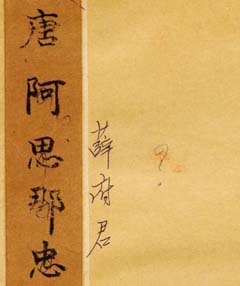 唐阿思那忠
薛府君